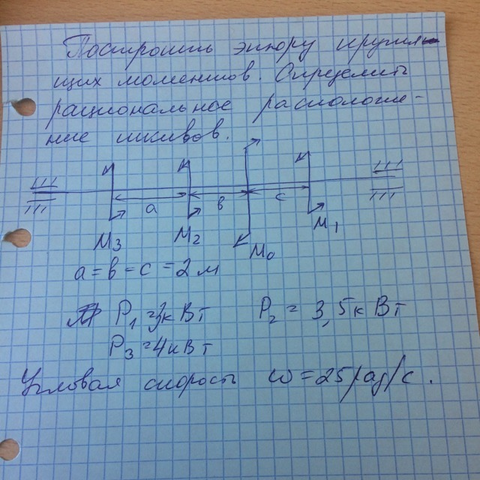 Построить эпюру крутя-
щих моментов. Определить
рациональное располоше-
ние шкивов.
a в c
M3 M2 M0 M1
a = в = c = 2 м
P1 = 3кВт P2 = 3,5кВт
P3 = 4кВт
Угловая скорость ω = 25рад/с.